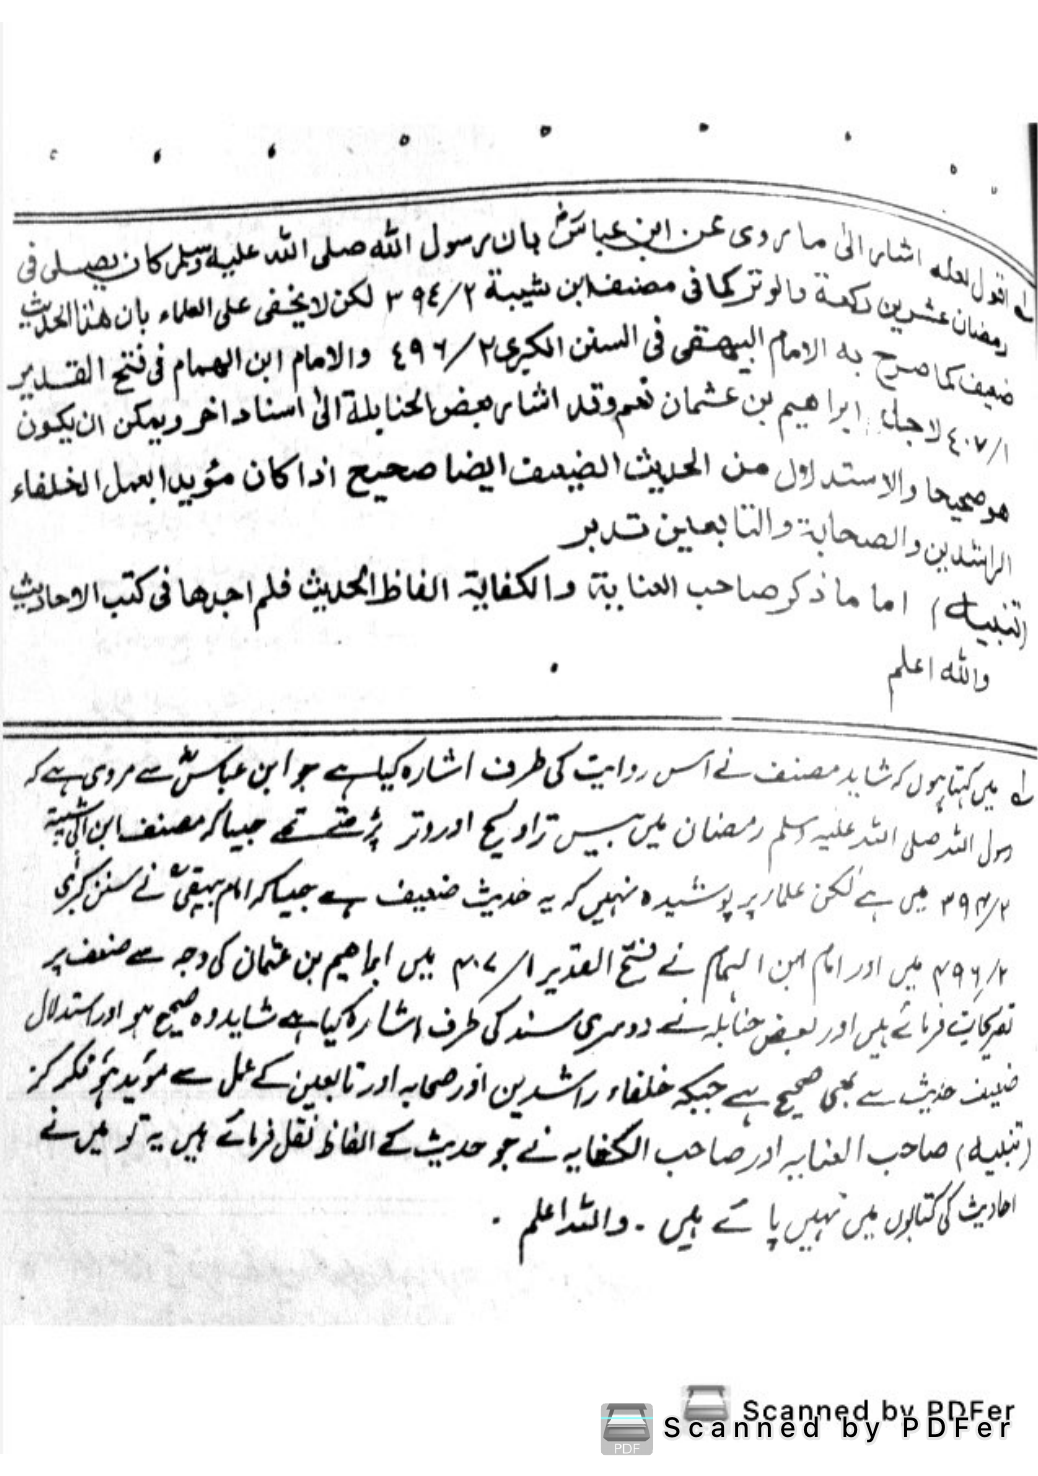 لـه اقول لعله اشار الى ما روى عن ابن عباسؓ بان رسول الله صلى الله عليه وسلم كان يصلى فى
رمضان عشرين ركعة والوتر كما فى مصنف ابن شيبة ٢/٣٩٤ لكن لا يخفى على العلماء بان هذا الحديث
ضعيف كما صرح به الامام البيهقى فى السنن الكبرى ٢/٤٩٦ والامام ابن الهمام فى فتح القدير
١/٤٠٧ لاجل ابراهيم بن عثمان نعم وقد اشار بعض الحنابلة الى اسناد اخر ويمكن ان يكون
هو صحيحا والاستدلال من الحديث الضعيف ايضا صحيح اذا كان مؤيدا بعمل الخلفاء
الراشدين والصحابة والتابعين تدبر
(تنبيه) اما ما ذكر صاحب العناية والكفاية الفاظ الحديث فلم اجدها فى كتب الاحاديث
والله اعلم
لـه میں کہتا ہوں کہ شاید مصنف نے اس روایت کی طرف اشارہ کیا ہے جو ابن عباسؓ سے مروی ہے کہ
رسول اللہ صلی اللہ علیہ وسلم رمضان میں بیس تراویح اور وتر پڑھتے تھے جیسا کہ مصنف ابن ابی شیبۃ
٢/٣٩٤ میں ہے لکن علماء پر پوشیدہ نہیں کہ یہ حدیث ضعیف ہے جیسا کہ امام بیہقیؒ نے سنن کبرٰی
٢/٤٩٦ میں اور امام ابن الہمام نے فتح القدیر ١/٤٠٧ میں ابراھیم بن عثمان کی وجہ سے ضعف پر
تصریحات فرمائے ہیں اور بعض حنابلہ نے دوسری سند کی طرف اشارہ کیا ہے شاید وہ صحیح ہو اور استدلال
ضعیف حدیث سے بھی صحیح ہے جبکہ خلفاء راشدین اور صحابہ اور تابعین کے عمل سے مؤید ہو فکر کر
(تنبیہ) صاحب العنایہ اور صاحب الکفایہ نے جو حدیث کے الفاظ نقل فرمائے ہیں یہ تو میں نے
احادیث کی کتابوں میں نہیں پائے ہیں ۔ واللہ اعلم .
Scanned by PDFer
Scanned by PDFer
PDF